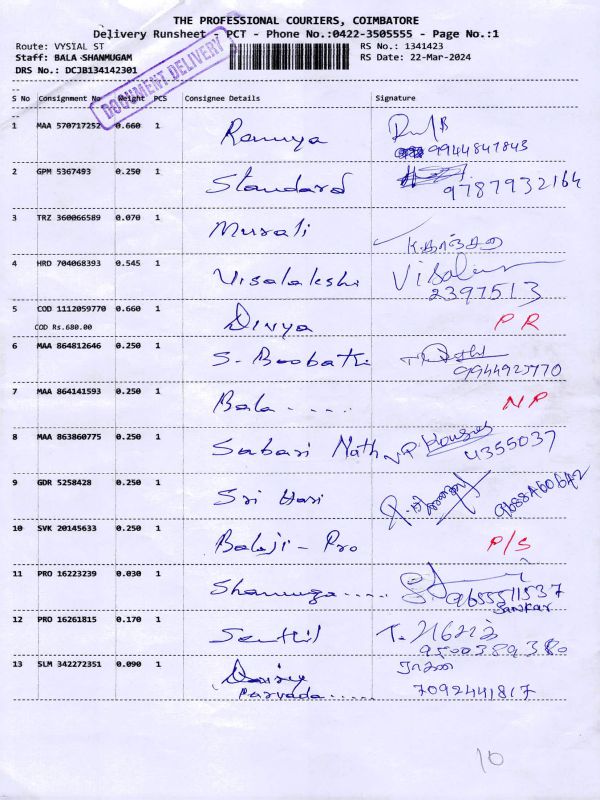 THE PROFESSIONAL COURIERS, COIMBATORE
Delivery Runsheet - PCT - Phone No.:0422-3505555 - Page No.:1
Route: VYSIAL ST RS No.: 1341423
Staff: BALA SHANMUGAM RS Date: 22-Mar-2024
DRS No.: DCJB134142301
DOCUMENT DELIVERY
S No Consignment No Weight PCS Consignee Details Signature
1 MAA 570717252 0.660 1 Ramya
9944847843
2 GPM 5367493 0.250 1 Standard 9787932164
3 TRZ 360066589 0.070 1 Murali
4 HRD 704068393 0.545 1 Visalakshi
2397513
5 COD 1112059770 0.660 1 Divya PR
COD Rs.680.00
6 MAA 864812646 0.250 1 S. Boobathi
7 MAA 864141593 0.250 1 Bala..... NP
8 MAA 863860775 0.250 1 Sabari Nath 4355037
9 GDR 5258428 0.250 1 Sri Hari
10 SVK 20145633 0.250 1 Balaji - Pro P/S
11 PRO 16223239 0.030 1 Shanmuga..... 9655511537
Sankar
12 PRO 16261815 0.170 1 Senthil
9500389380
13 SLM 342272351 0.090 1
7092441817
10